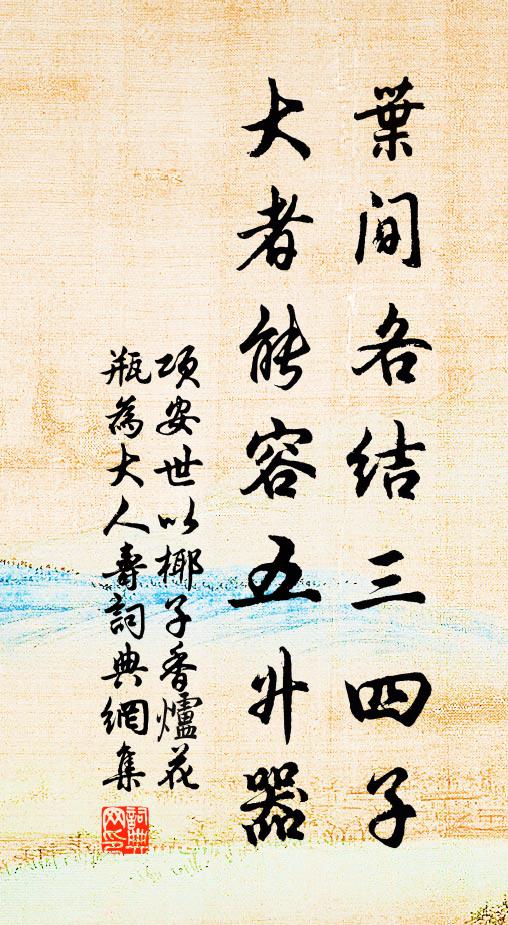 葉间各结三四子
大者能容五升器
项安世以椰子香爐花
瓶為大人壽詞典網集
詞典
网印